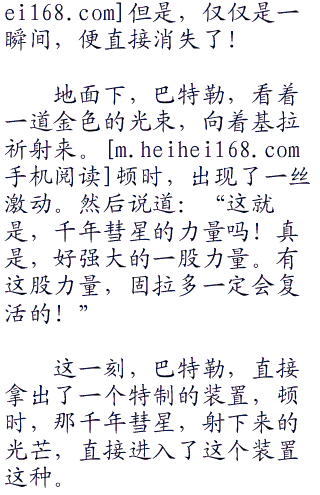 ei168.com]但是，仅仅是一
瞬间，便直接消失了！
地面下，巴特勒，看着
一道金色的光束，向着基拉
祈射来。[m.heihei168.com
手机阅读]顿时，出现了一丝
激动。然后说道：“这就
是，千年彗星的力量吗！真
是，好强大的一股力量。有
这股力量，固拉多一定会复
活的！”
这一刻，巴特勒，直接
拿出了一个特制的装置，顿
时，那千年彗星，射下来的
光芒，直接进入了这个装置
这种。